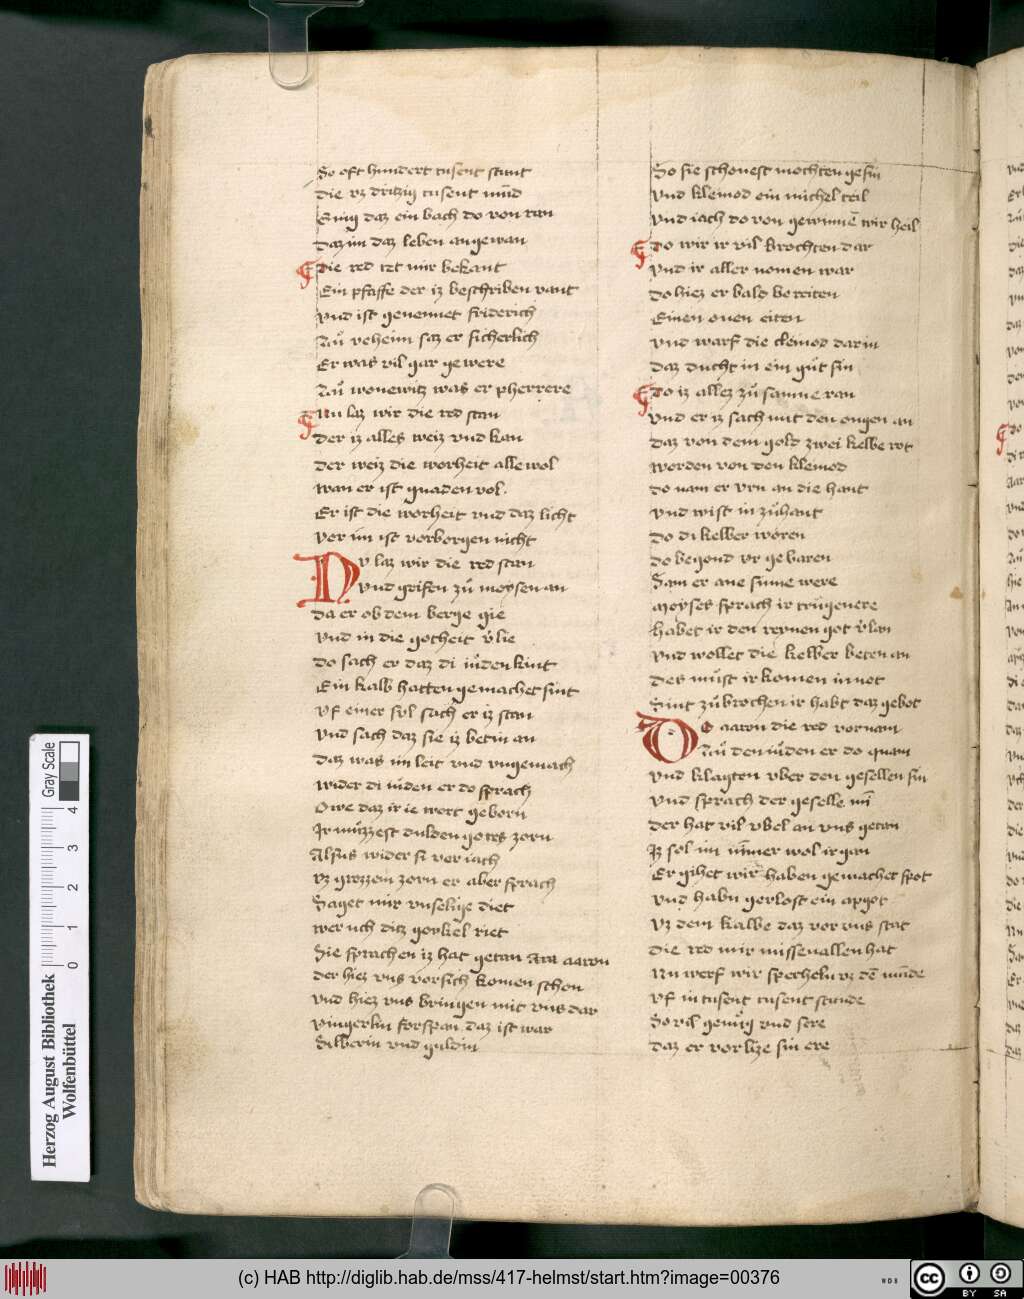 So oft hundert tusent stunt
die vz drizzig tusent mūd
Ginig daz ein bach do von ran
Daz im daz leben angewan
Die red tet mir bekant
Ein pfaffe der iz beschriben vant
Vnd ist genennet friderich
Zů veheim saz er sicherlich
Er was vil gar gewere
Zů wonewitz was er pherrere
Nu laz wir die red stan
Der iz alles weiz vnd kan
Der weiz die worheit alle wol
Wan er ist gnaden vol.
Er ist die worheit vnd daz licht
Vor im ist vorborgen nicht
Nv laz wir die red stan
Vnd grifen zů moysen an
Da er ob dem berge gie
Vnd in die gotheit v̓lie
Do sach er daz di iůden kint
Ein kalb hatten gemachet sint
Vf einer svl sach er iz stan
Vnd sach daz sie iz betin an
Daz was im leit vnd vngemach
Wider di iuden er do sprach
Owe daz ir ie wort geborn
Ir můzzest dulden gotes zorn
Alsus wider si veriach
Vz grozzem zorn er aber sprach
Saget mir vnselige diet
Wer uch ditz goykel riet
Sie sprachen iz hat getan aaron
Der hiez vns vorsich komen schon
Vnd hiez vns bringen mit vns dar
Vingerlin forspan daz ist war
Silberin vnd guldin
So sie schonest mochten gesin
Vnd kleinod ein michel teil
Vnd iach do von gewunnē wir heil
Do wir ir vil brochten dar
Vnd ir aller nomen war
Do hiez er bald bereiten
Einen ouen eiten
Vnd warf die cleinod darin
Daz ducht in ein gůt sin
Do iz allez zů samne ran
Vnd er iz sach mit den ougen an
Daz von dem gold zwei kelbe rot
Worden von den kleinod
Do nam er vrn an die hant
Vnd wist in zůhant
Do di kelber woren
Do begond vr gebaren
Sam er ane sinne were
Moyses sprach ir trugenere
Habet ir den reynen got v̓lan
Vnd wollet die kelber beten an
Des můst ir komen in not
Sint zůbrochen ir habt daz gebot
Do aaron die red vornam
Zů den iůden er do quam
Vnd klagten vber den gesellen sin
Vnd sprach der geselle mī
Der hat vil vbel an vns getan
Iz sol im nim̄er wol irgan
Er gihet wir haben gemachet spot
Vnd habn gerlost ein apgot
Vz dem kalbe daz vor vns stat
Die red mir misseuallen hat
Nu werf wir sperheln vz dē mūde
Vf in tusent tusent stunde
So vil genůg vnd sere
Daz er vorlize sin ere
Herzog August Bibliothek
Wolfenbüttel
0 1 2 3 4
Gray Scale
(c) HAB http://diglib.hab.de/mss/417-helmst/start.htm?image=00376
WDB
cc BY SA